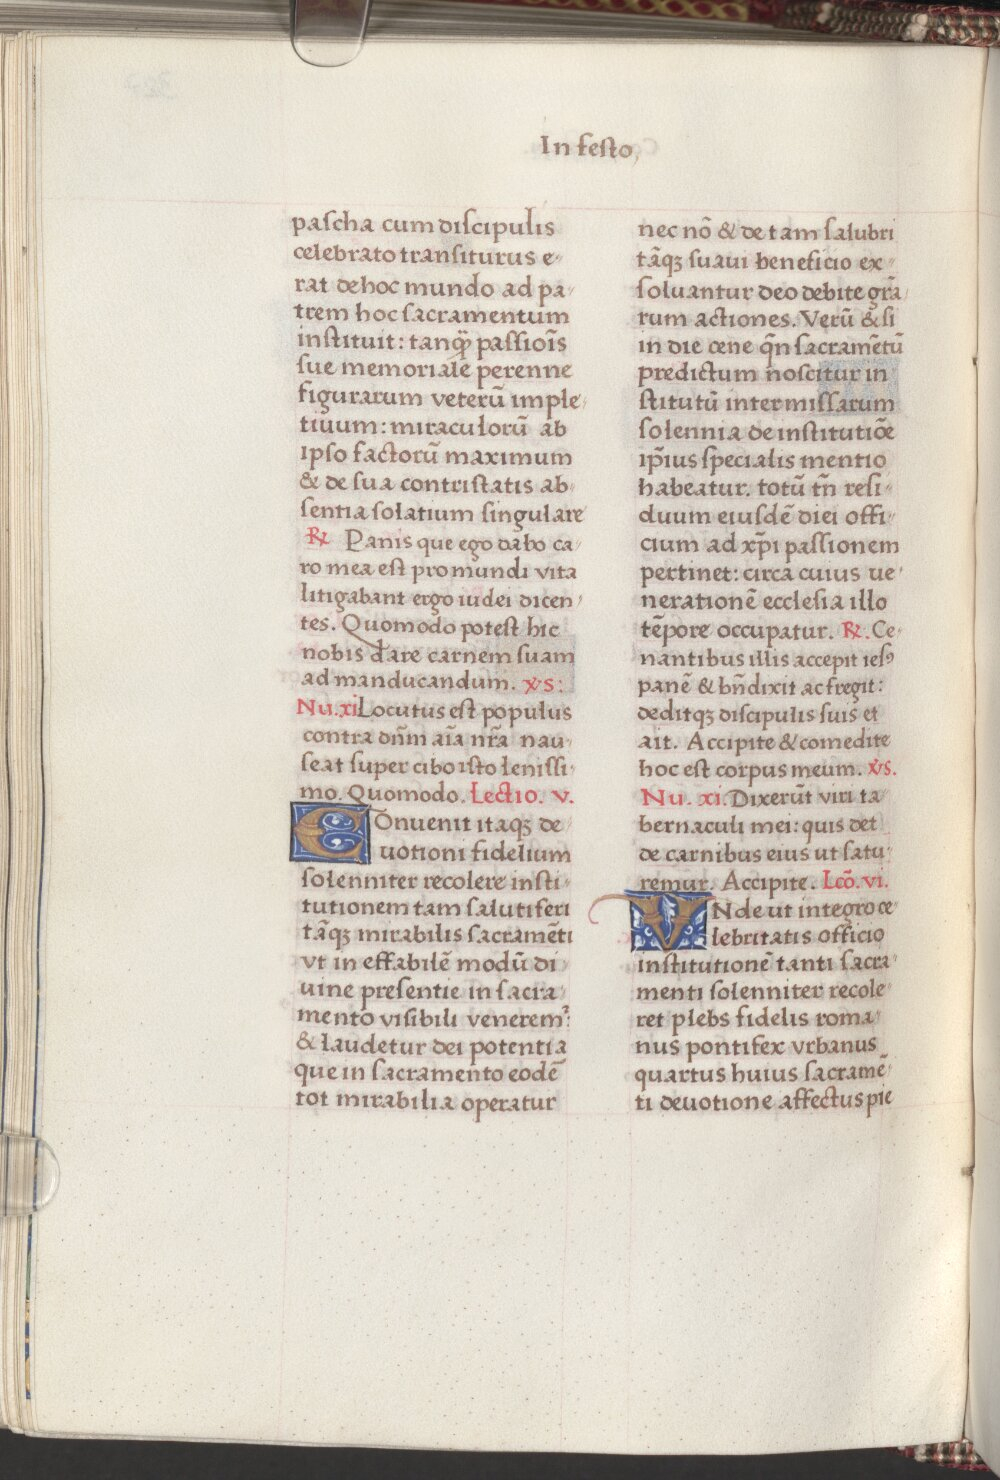 In festo,
pascha cum discipulis
celebrato transiturus e-
rat de hoc mundo ad pa-
trem hoc sacramentum
instituit: tanq̄ȝ passiōis
sue memoriale perenne
figurarum veterū imple-
tiuum: miraculorū ab
ipso factorū maximum
& de sua contristatis ab-
sentia solatium singulare
℟ Panis que ego dabo ca-
ro mea est pro mundi vita
litigabant ergo iudei dicen-
tes. Quomodo potest hic
nobis dare carnem suam
ad manducandum. v̇s:
Nu. xi Locutus est populus
contra dn̄m aīa nr̄a nau-
seat super cibo isto lenissi-
mo. Quomodo. Lectio. v.
COnuenit itaqȝ de-
uotioni fidelium
solenniter recolere insti-
tutionem tam salutiferi
tāqȝ mirabilis sacramēti
vt in effabilē modū di-
uine presentie in sacra-
mento visibili veneremᷣ:
& laudetur dei potentia
que in sacramento eodē
tot mirabilia operatur
nec nō & de tam salubri
tāqȝ suaui beneficio ex-
soluantur deo debite grā-
rum actiones. Verū & si
in die cene qn̄ sacramētū
predictum noscitur in
stitutū inter missarum
solennia de institutiōe
ip̄ius specialis mentio
habeatur. totū tn̄ resi-
duum eiusdē diei offi-
cium ad xp̄i passionem
pertinet: circa cuius ue-
nerationē ecclesia illo
tēpore occupatur. ℟. Ce-
nantibus illis accepit iesꝰ
panē & bn̄dixit ac fregit:
deditqȝ discipulis suis et
ait. Accipite & comedite
hoc est corpus meum. v̇s.
Nu. xi. Dixerūt viri ta-
bernaculi mei: quis det
de carnibus eius ut satu-
remur. Accipite. Lcō. vi.
VNde ut integro ce-
lebritatis officio
institutionē tanti sacra-
menti solenniter recole-
ret plebs fidelis roma-
nus pontifex vrbanus
quartus huius sacramē-
ti deuotione affectus pie